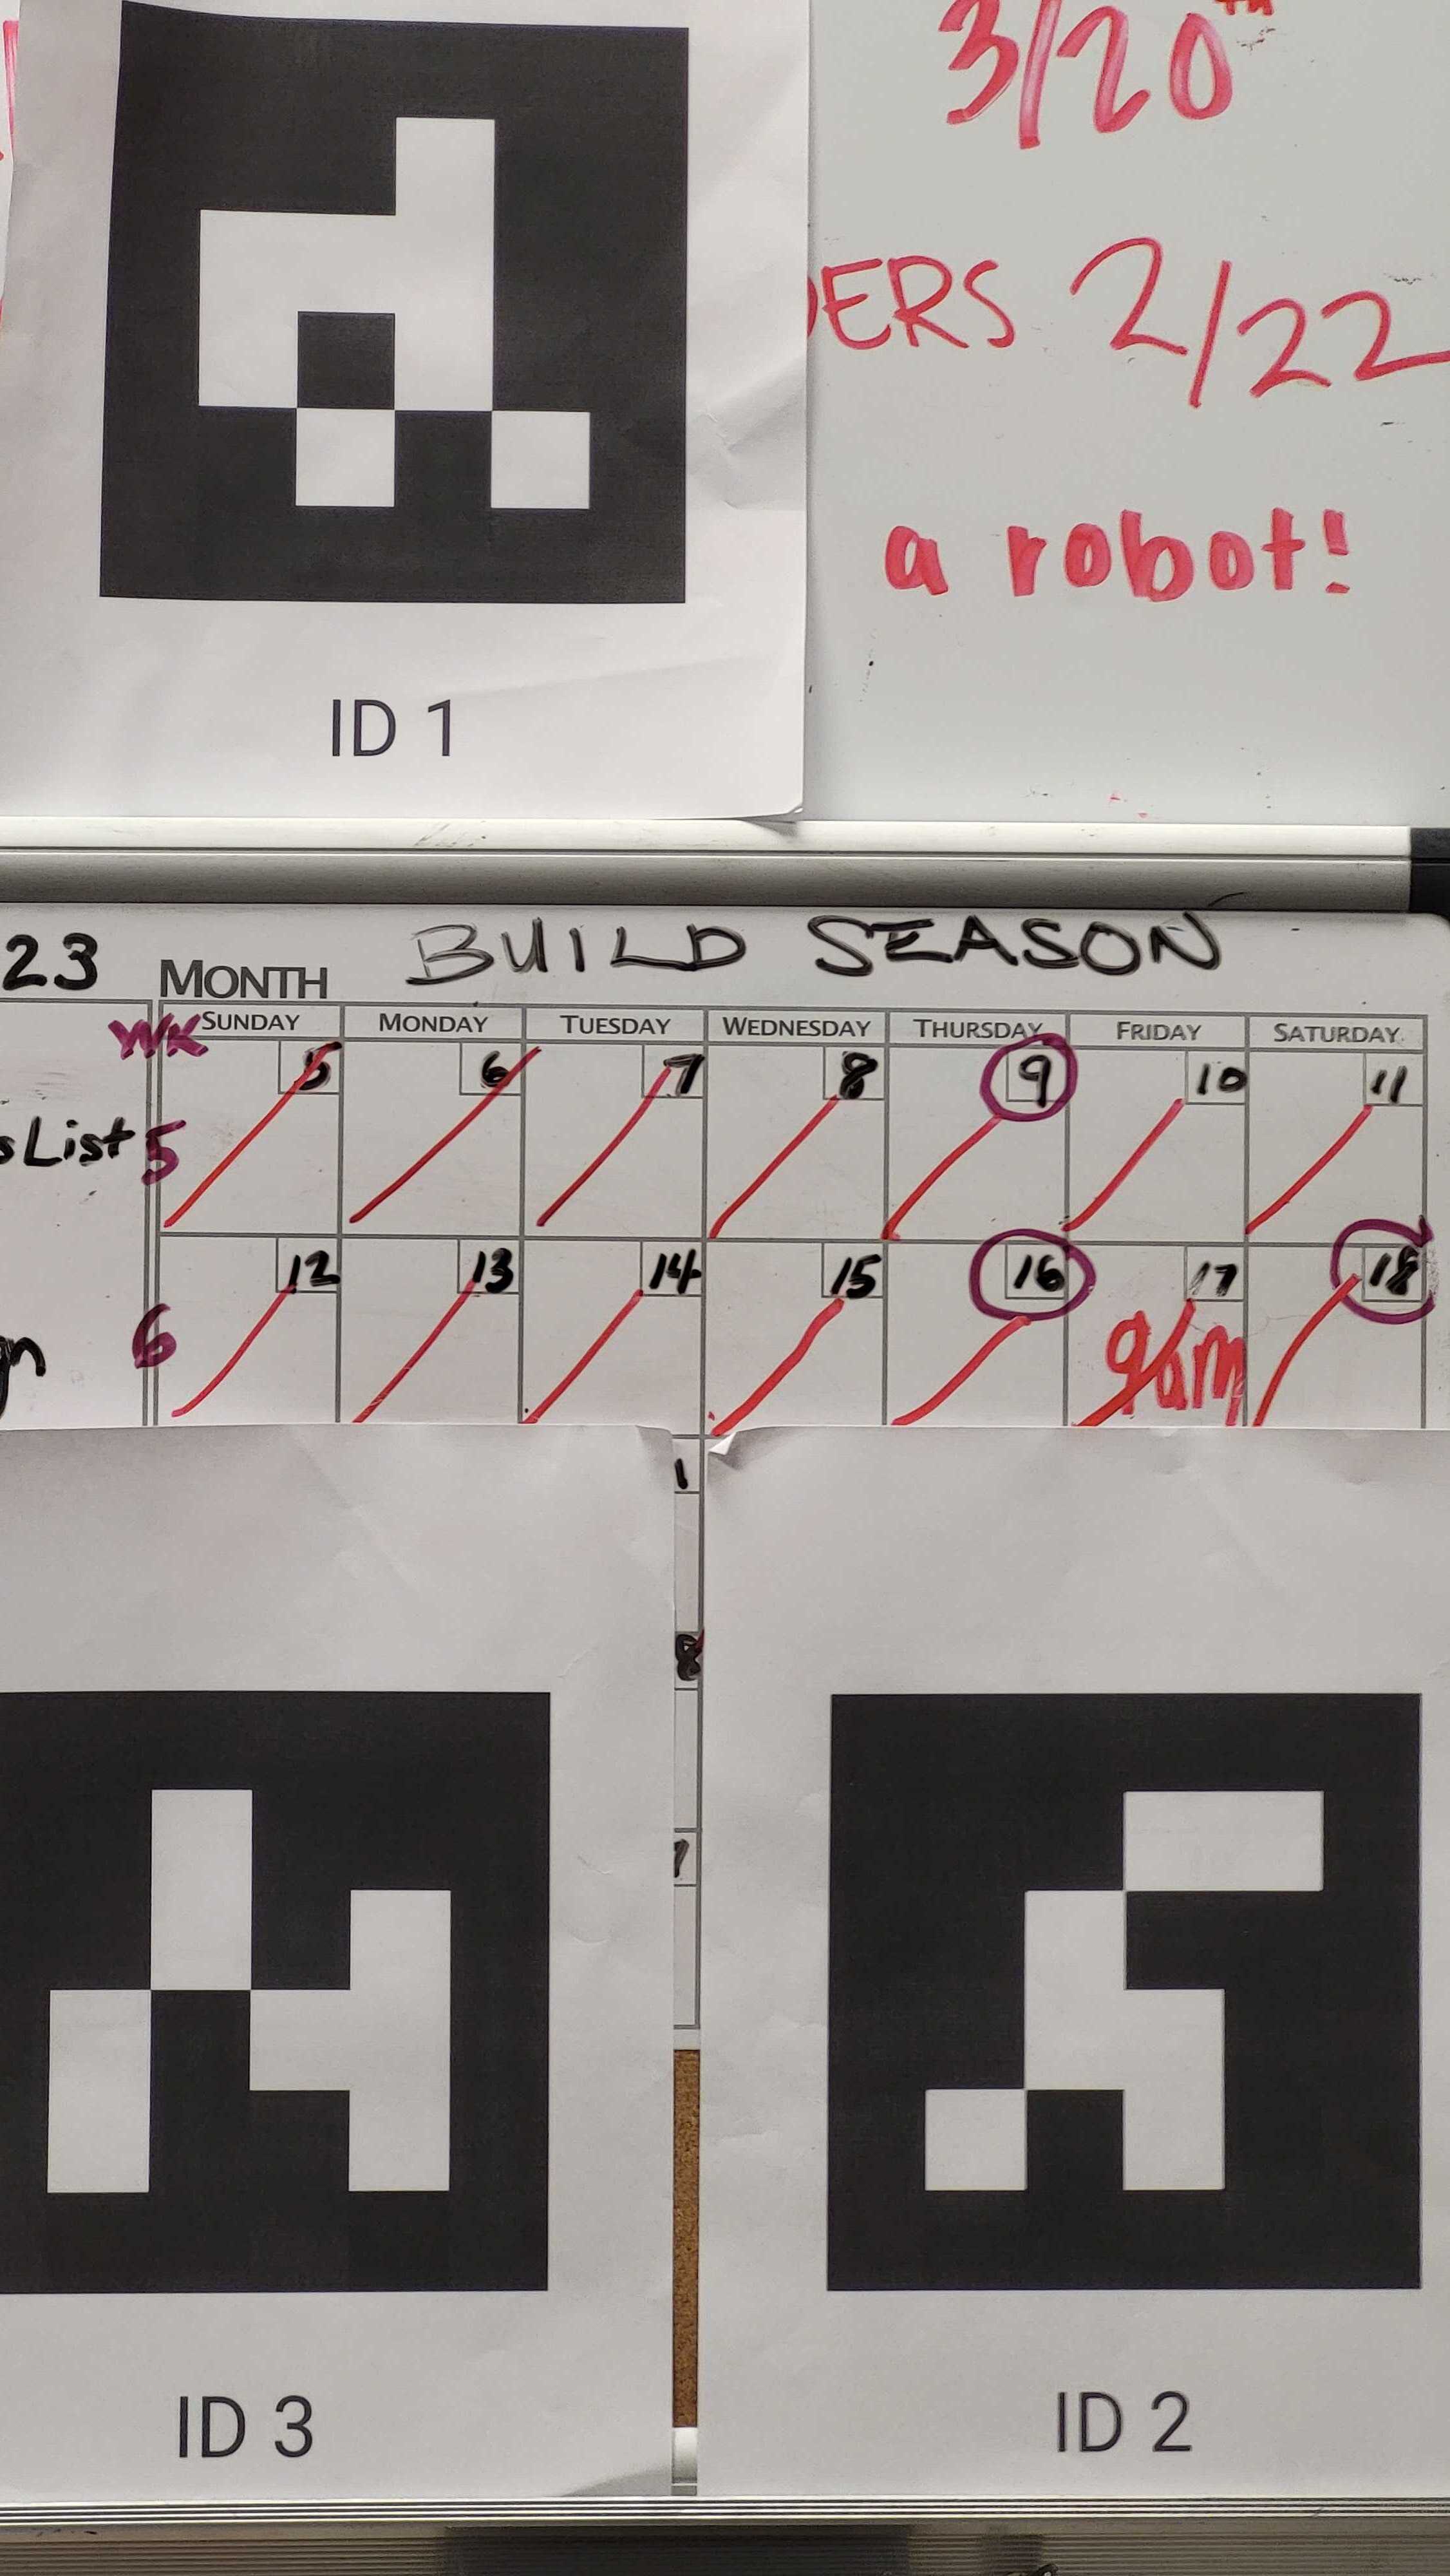 3/20th
DERS 2/22
a robot!
ID 1
23 MONTH BUILD SEASON
WK SUNDAY MONDAY TUESDAY WEDNESDAY THURSDAY FRIDAY SATURDAY
5 6 7 8 9 10 11
s List 5
12 13 14 15 16 17 18
6
1
8
ID 3
ID 2